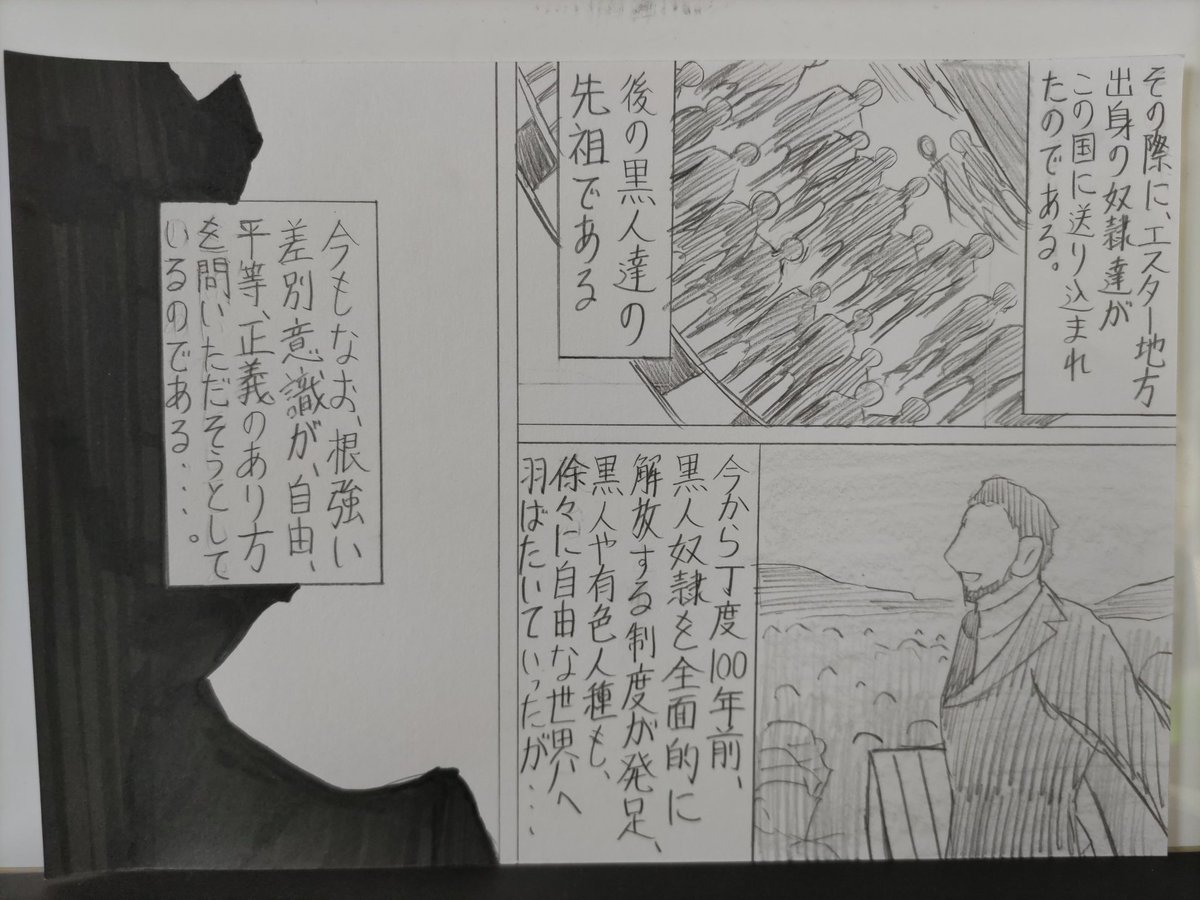 その際に、エスター地方
出身の奴隷達が
この国に送り込まれ
たのである。
後の黒人達の
先祖である
今から丁度100年前、
黒人奴隷を全面的に
解放する制度が発足、
黒人や有色人種も、
徐々に自由な世界へ
羽ばたいていったが・・・
今もなお、根強い
差別意識が、自由、
平等、正義のあり方
を問いただそうとして
いるのである・・・・。